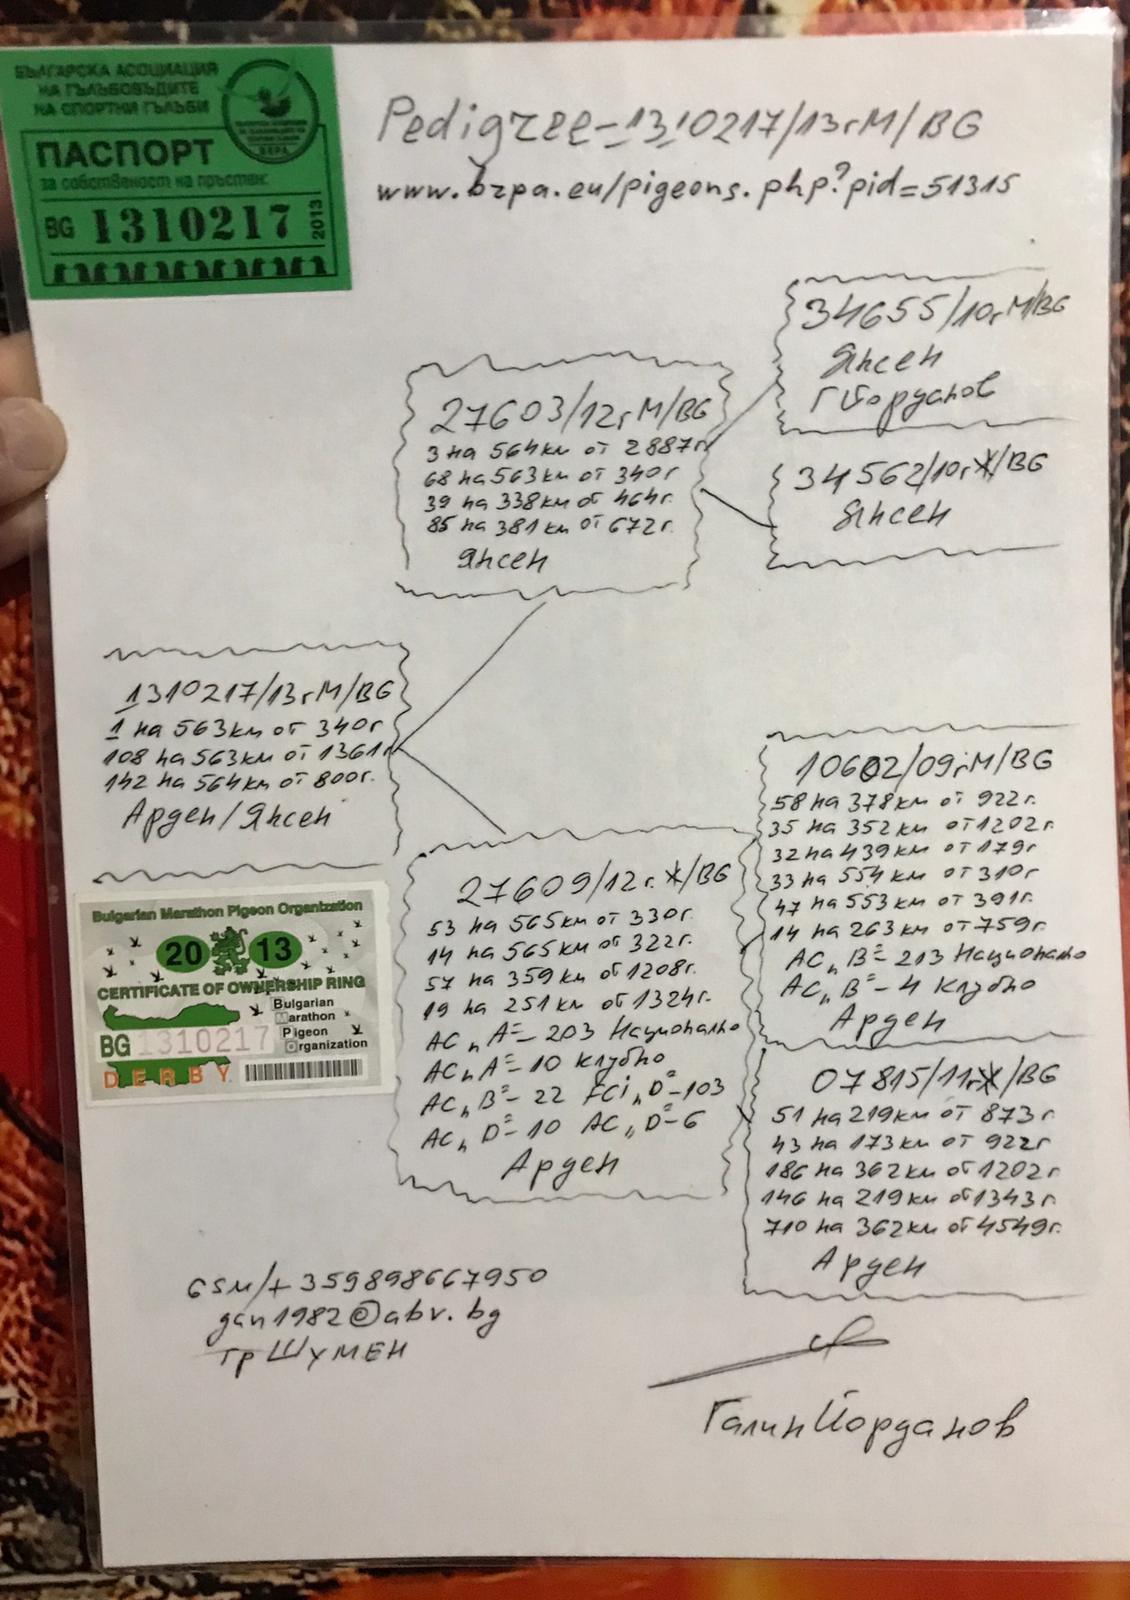 БЪЛГАРСКА АСОЦИАЦИЯ
НА ГЪЛЪБОВЪДИТЕ
НА СПОРТНИ ГЪЛЪБИ
ПАСПОРТ
за собственост на пръстен:
BG 1310217 2013
Pedigree-1310217/13гМ/BG
www.brpa.eu/pigeons.php?pid=51315
34655/10гМ/BG
Янсен
Г Йорданов
27603/12гМ/BG
3 на 564км от 2887г
68 на 563км от 340г
39 на 338км от 464г.
85 на 381км от 672г.
Янсен
34562/10гЖ/BG
Янсен
1310217/13гМ/BG
1 на 563км от 340г
108 на 563км от 1361г
142 на 564км от 800г.
Арден/Янсен
Bulgarian Marathon Pigeon Organization
20 13
CERTIFICATE OF OWNERSHIP RING
Bulgarian
Marathon
Pigeon
Organization
BG 1310217
DERBY
27609/12г.Ж/BG
53 на 565км от 330г.
14 на 565км от 322г.
57 на 359км от 1208г.
19 на 251км от 1324г.
AC „A"- 203 Национално
AC „A"- 10 Клубно
AC „B"- 22 FCI „D"-103
AC „D"- 10 AC „D"-6
Арден
10602/09гМ/BG
58 на 378км от 922г.
35 на 352км от 1202г.
32 на 439км от 179г
33 на 554км от 310г
47 на 553км от 391г.
14 на 263км от 759г.
AC „B"- 213 Национално
AC „B"- 4 Клубно
Арден
07815/11гЖ/BG
51 на 219км от 873г
43 на 173км от 922г
186 на 362км от 1202г.
146 на 219км от 1343г.
710 на 362км от 4549г.
Арден
GSM/+359898667950
gan1982@abv.bg
гр ШУМЕН
Галин Йорданов